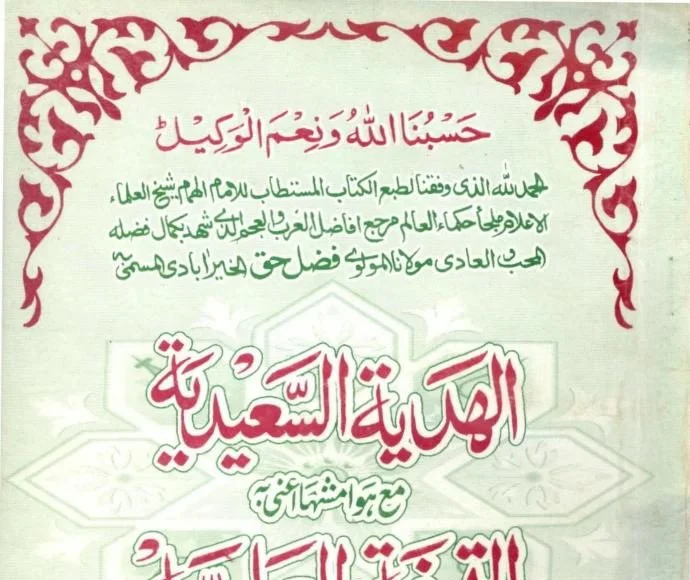 حَسْبُنَا اللهُ وَنِعْمَ الْوَكِيْلُ
الحمد لله الذى وفقنا لطبع الكتاب المستطاب للامام الهمام شيخ العلماء
الاعلام ملجأ حكماء العالم مرجع افاضل العرب والعجم الذى شهد بكمال فضله
المحب والعادى مولانا المولوى فضل حق الخيرابادى المسمى به
الهَدية السَّعِيْدِية
مع هوامشها اعنى به